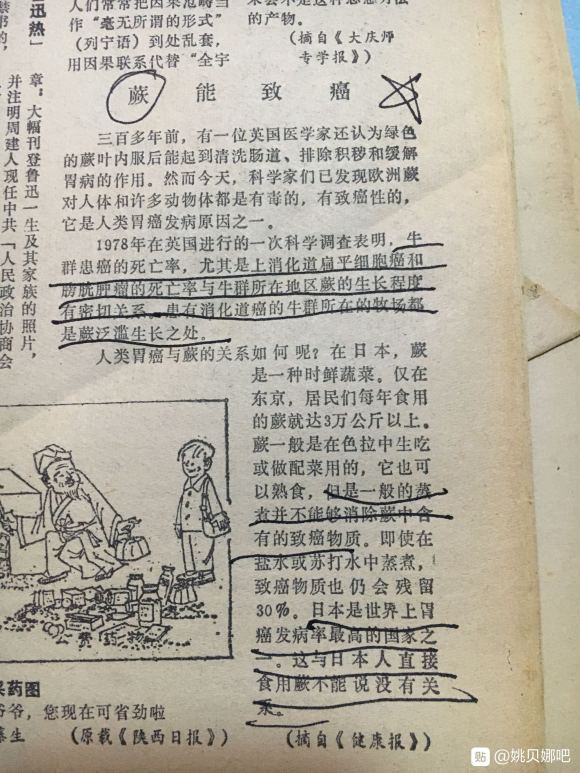 作“毫无所谓的形式”
(列宁语)到处乱套,
用因果联系代替“全宇
的产物。
(摘自《大庆师
专学报》)
迅热」
章:大幅刊登鲁迅一生及其家族的照片,
并注明周建人现任中共、「人民政治协商会
蕨能致癌
三百多年前,有一位英国医学家还认为绿色
的蕨叶内服后能起到清洗肠道、排除积秽和缓解
胃病的作用。然而今天,科学家们已发现欧洲蕨
对人体和许多动物体都是有毒的,有致癌性的,
它是人类胃癌发病原因之一。
1978年在英国进行的一次科学调查表明,牛
群患癌的死亡率,尤其是上消化道扁平细胞癌和
膀胱肿瘤的死亡率与牛群所在地区蕨的生长程度
有密切关系。患有消化道癌的牛群所在的牧场都
是蕨泛滥生长之处。
人类胃癌与蕨的关系如何呢?在日本,蕨
是一种时鲜蔬菜。仅在
东京,居民们每年食用
的蕨就达3万公斤以上。
蕨一般是在色拉中生吃
或做配菜用的,它也可
以熟食,但是一般的蒸
煮并不能够消除蕨中含
有的致癌物质。即使在
盐水或苏打水中蒸煮,
致癌物质也仍会残留
30%。日本是世界上胃
癌发病率最高的国家之
一。这与日本人直接
食用蕨不能说没有关
系。
(摘自《健康报》)
公费药物
药图
爷,您现在可省劲啦
生 (原载《陕西日报》)
贴 @姚贝娜吧